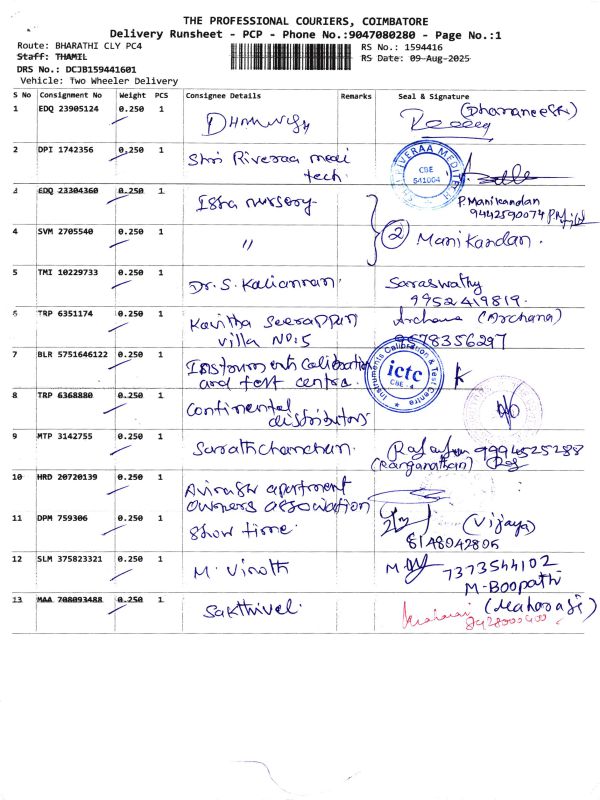 THE PROFESSIONAL COURIERS, COIMBATORE
Delivery Runsheet - PCP - Phone No.:9047080280 - Page No.:1
Route: BHARATHI CLY PC4
RS No.: 1594416
Staff: THAMIL
RS Date: 09-Aug-2025
DRS No.: DCJB159441601
Vehicle: Two Wheeler Delivery
S No Consignment No Weight PCS Consignee Details Remarks Seal & Signature
1 EDQ 23905124 0.250 1
2 DPI 1742356 0.250 1 Shri Riveraa medi
tech.
RIVERAA MEDITECH
CBE
641004
3 EDQ 23304360 0.250 1 Isha nursery
P.Manikandan
9442590074
4 SVM 2705540 0.250 1 〃 2 Manikandan.
5 TMI 10229733 0.250 1 Dr. S. Kaliannan. Saraswathy
9952419819.
6 TRP 6351174 0.250 1 Kavitha Seerappan (Archana)
villa No:5 9678356297
7 BLR 5751646122 0.250 1 Instruments Calibration
and test centre.
Instruments Calibration & Test Centre
ictc
CBE - 4
8 TRP 6368880 0.250 1 Continental
distributors
9 MTP 3142755 0.250 1 Sarathchandran. 9994525288
(Ranganathan)
10 HRD 20720139 0.250 1 apartment
owners association
11 DPM 759306 0.250 1 Show time. (Vijaya)
8148042805
12 SLM 375823321 0.250 1 M. Vinoth 7373544102
M-Boopathi
13 MAA 708093488 0.250 1 Sakthivel. (Maharaji)